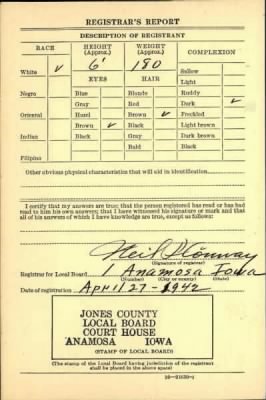 REGISTRAR'S REPORT
DESCRIPTION OF REGISTRANT
RACE HEIGHT (Approx.) WEIGHT (Approx.) COMPLEXION
6' 180
White ✓ Sallow
EYES HAIR Light
Negro Blue Blonde Ruddy
Gray Red Dark ✓
Oriental Hazel Brown ✓ Freckled
Brown ✓ Black Light brown
Indian Black Gray Dark brown
Bald Black
Filipino
Other obvious physical characteristics that will aid in identification
I certify that my answers are true; that the person registered has read or has had
read to him his own answers; that I have witnessed his signature or mark and that
all of his answers of which I have knowledge are true, except as follows:
Neil Conway
(Signature of registrar)
Registrar for Local Board 1 Anamosa Iowa
(Number) (City or county) (State)
Date of registration April 27-1942
JONES COUNTY
LOCAL BOARD
COURT HOUSE
ANAMOSA IOWA
(STAMP OF LOCAL BOARD)
(The stamp of the Local Board having jurisdiction of the registrant
shall be placed in the above space)